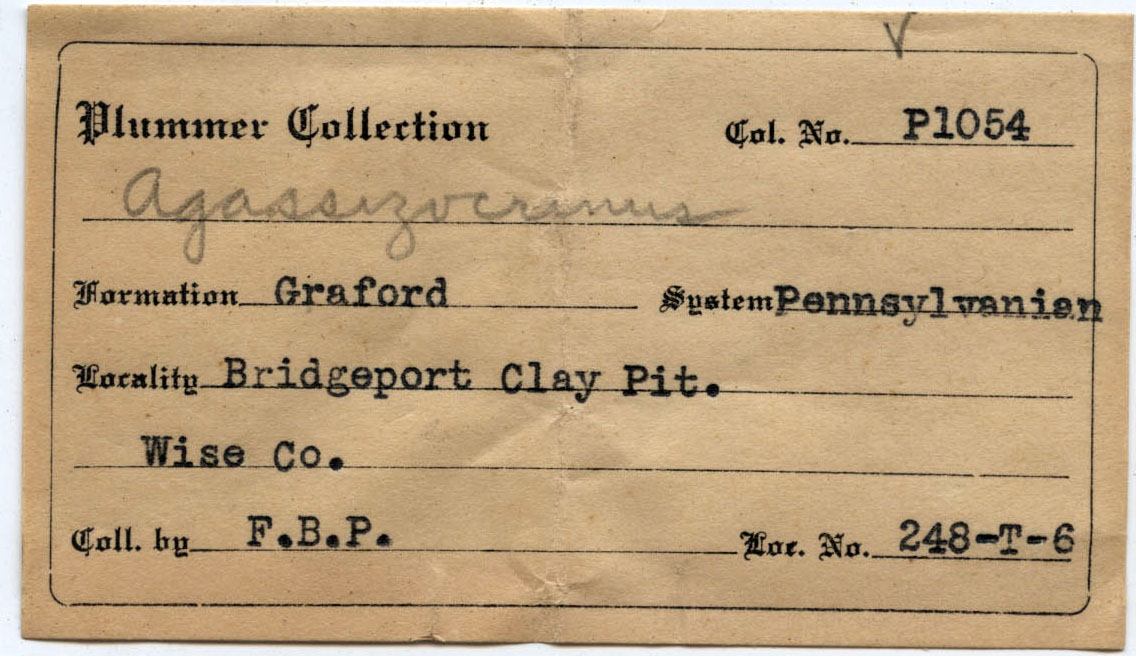 Plummer Collection Col. No. P1054
Agassizocrinus
Formation Graford System Pennsylvanian
Locality Bridgeport Clay Pit.
Wise Co.
Coll. by F.B.P. Loc. No. 248-T-6